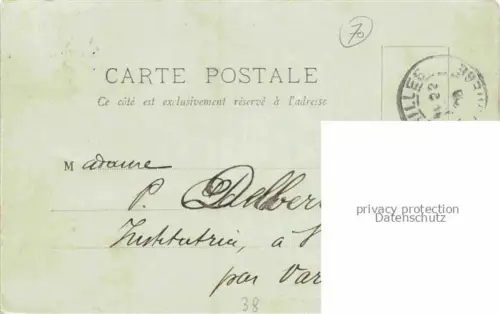 70
CARTE POSTALE
Ce côté est exclusivement réservé à l'adresse
22
Madame
P. Delber
Institutrice, à
par Var
privacy protection
Datenschutz
38